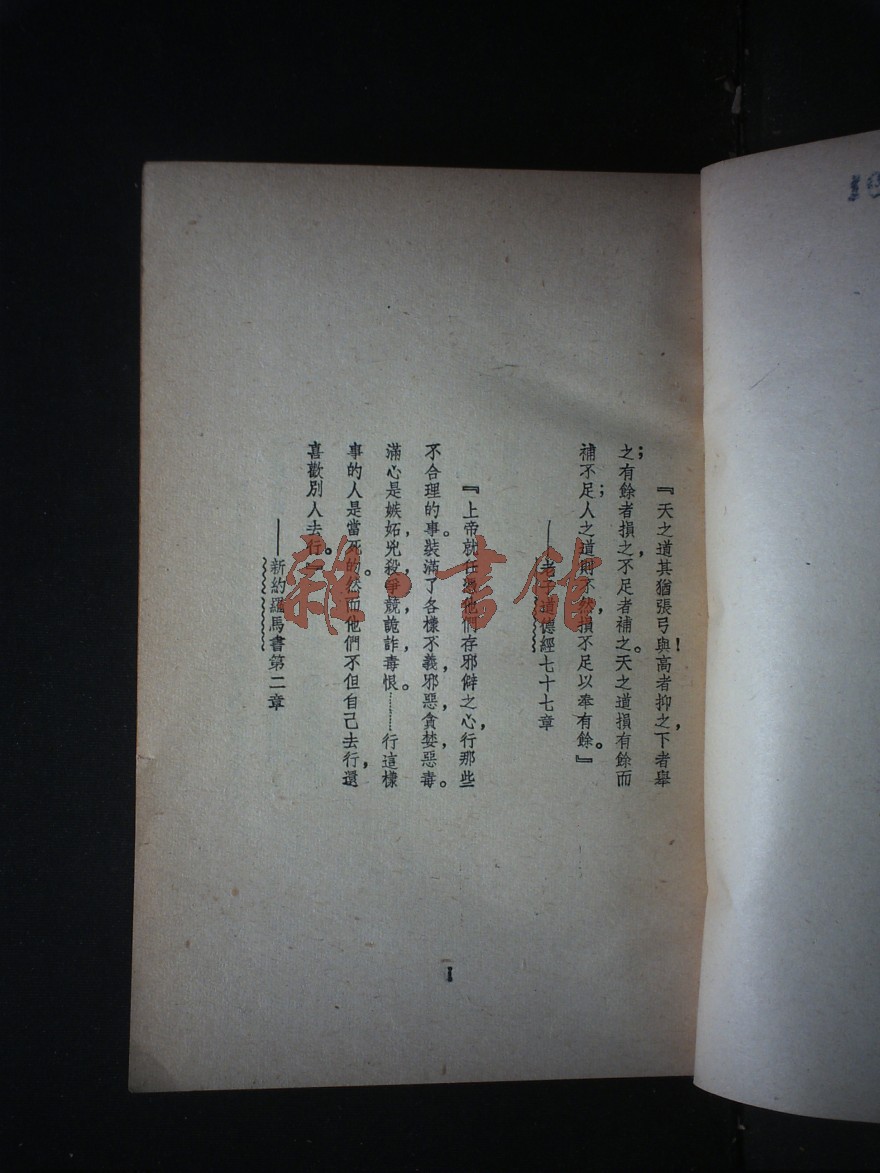 『天之道其猶張弓與！高者抑之，下者舉
之；有餘者損之，不足者補之。天之道損有餘而
補不足；人之道則不然，損不足以奉有餘。』
——老子道德經七十七章
『上帝就任憑他們存邪僻之心，行那些
不合理的事。裝滿了各樣不義，邪惡，貪婪，惡毒。
滿心是嫉妬，兇殺，爭競，詭詐，毒恨。………行這樣
事的人是當死的。然而他們不但自己去行，還
喜歡別人去行。』
——新約羅馬書第二章
1
雜·書館